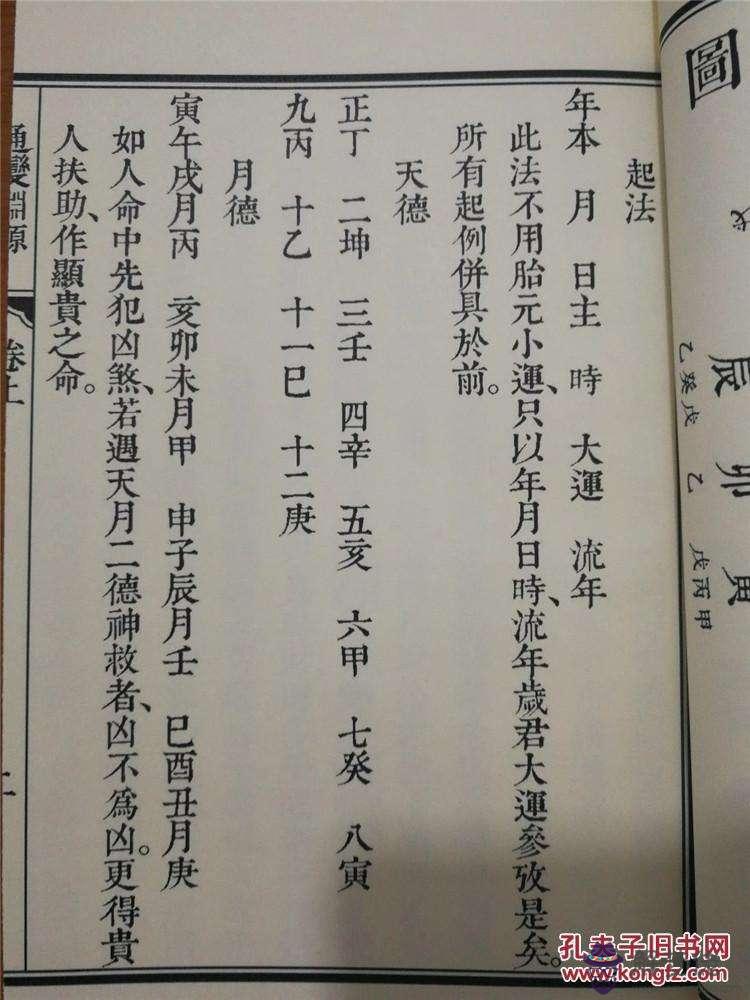 圖
戌
辰 卯 寅
乙癸戊 乙 戊丙甲
起法
年本 月 日主 時 大運 流年
此法不用胎元小運、只以年月日時、流年歲君大運參攷是矣。
所有起例併具於前。
天德
正丁 二坤 三壬 四辛 五亥 六甲 七癸 八寅
九丙 十乙 十一巳 十二庚
月德
寅午戌月丙 亥卯未月甲 申子辰月壬 巳酉丑月庚
如人命中先犯凶煞、若遇天月二德神救者、凶不爲凶。更得貴
人扶助、作顯貴之命。
通變淵源 卷上 二
孔夫子旧书网
www.kongfz.com